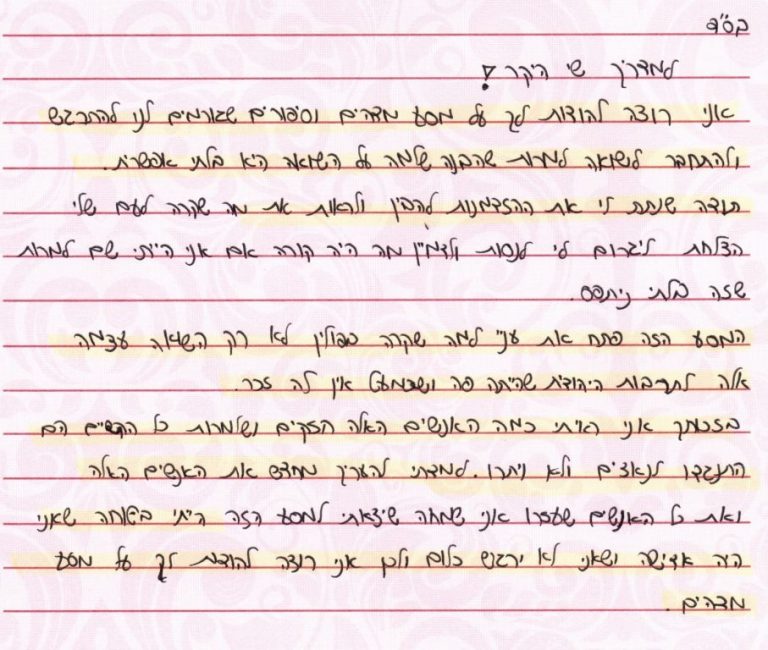 בס"ד
למדריך שי היקר!
אני רוצה להודות לך על מסע מדהים וסיפורים שגורמים לנו להתרגש
ולהתחבר לשואה למרות שהבנה שלמה על השואה היא בלתי אפשרית.
תודה שנתת לי את ההזדמנות להבין ולראות את מה שקרה לעם שלי
הצלחת ליגרום לי לנסות ולדמיין מה היה קורה אם אני הייתי שם למרות
שזה בלתי ניתפס.
המסע הזה פתח את עניי למה שקרה בפולין לא רק השואה עצמה
אלה לתרבות היהודית שהייתה פה ושכמעט אין לה זכר.
בזכותך אני ראיתי כמה האנשים האלה חזקים ושלמרות כל הקשיים הם
התנגדו לנאצים ולא ויתרו. למדתי להעריך מחדש את האנשים האלה
ואת כל האנשים שעזרו אני שמחה שיצאתי למסע הזה הייתי בטוחה שאני
אדישה ושאני לא ירגיש כלום ולכן אני רוצה להודות לך על מסע
מדהים.